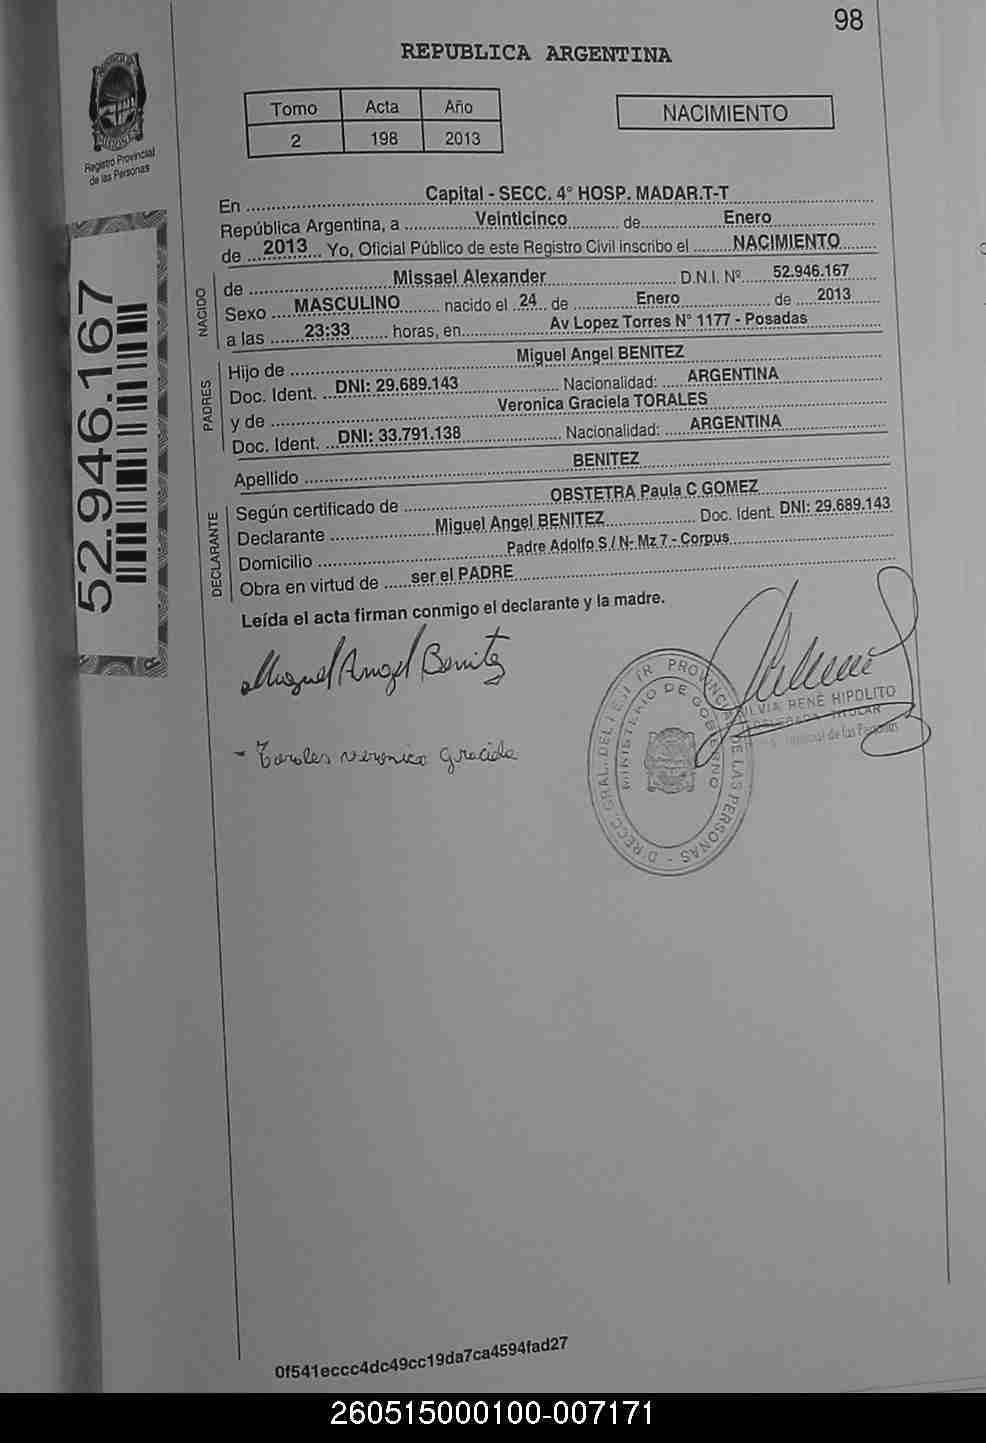 98
REPUBLICA ARGENTINA
Tomo Acta Año
2 198 2013
NACIMIENTO
Registro Provincial
de las Personas
52.946.167
En Capital - SECC. 4° HOSP. MADAR.T-T
República Argentina, a Veinticinco de Enero
de 2013 Yo, Oficial Público de este Registro Civil inscribo el NACIMIENTO
NACIDO
de Missael Alexander D.N.I. Nº 52.946.167
Sexo MASCULINO nacido el 24 de Enero de 2013
a las 23:33 horas, en Av Lopez Torres N° 1177 - Posadas
PADRES
Hijo de Miguel Angel BENITEZ
Doc. Ident. DNI: 29.689.143 Nacionalidad: ARGENTINA
y de Veronica Graciela TORALES
Doc. Ident. DNI: 33.791.138 Nacionalidad: ARGENTINA
Apellido BENITEZ
DECLARANTE
Según certificado de OBSTETRA Paula C GOMEZ
Declarante Miguel Angel BENITEZ Doc. Ident. DNI: 29.689.143
Domicilio Padre Adolfo S / N- Mz 7 - Corpus
Obra en virtud de ser el PADRE
Leída el acta firman conmigo el declarante y la madre.
Miguel Angel Benitez
- Torales veronica graciela
PROVINCIAL DE LAS PERSONAS - DIRECC. GRAL. DEL
MINISTERIO DE GOBIERNO
SILVIA RENÉ HIPOLITO
DELEGADA TITULAR
de las Personas
0f541eccc4dc49cc19da7ca4594fad27
260515000100-007171